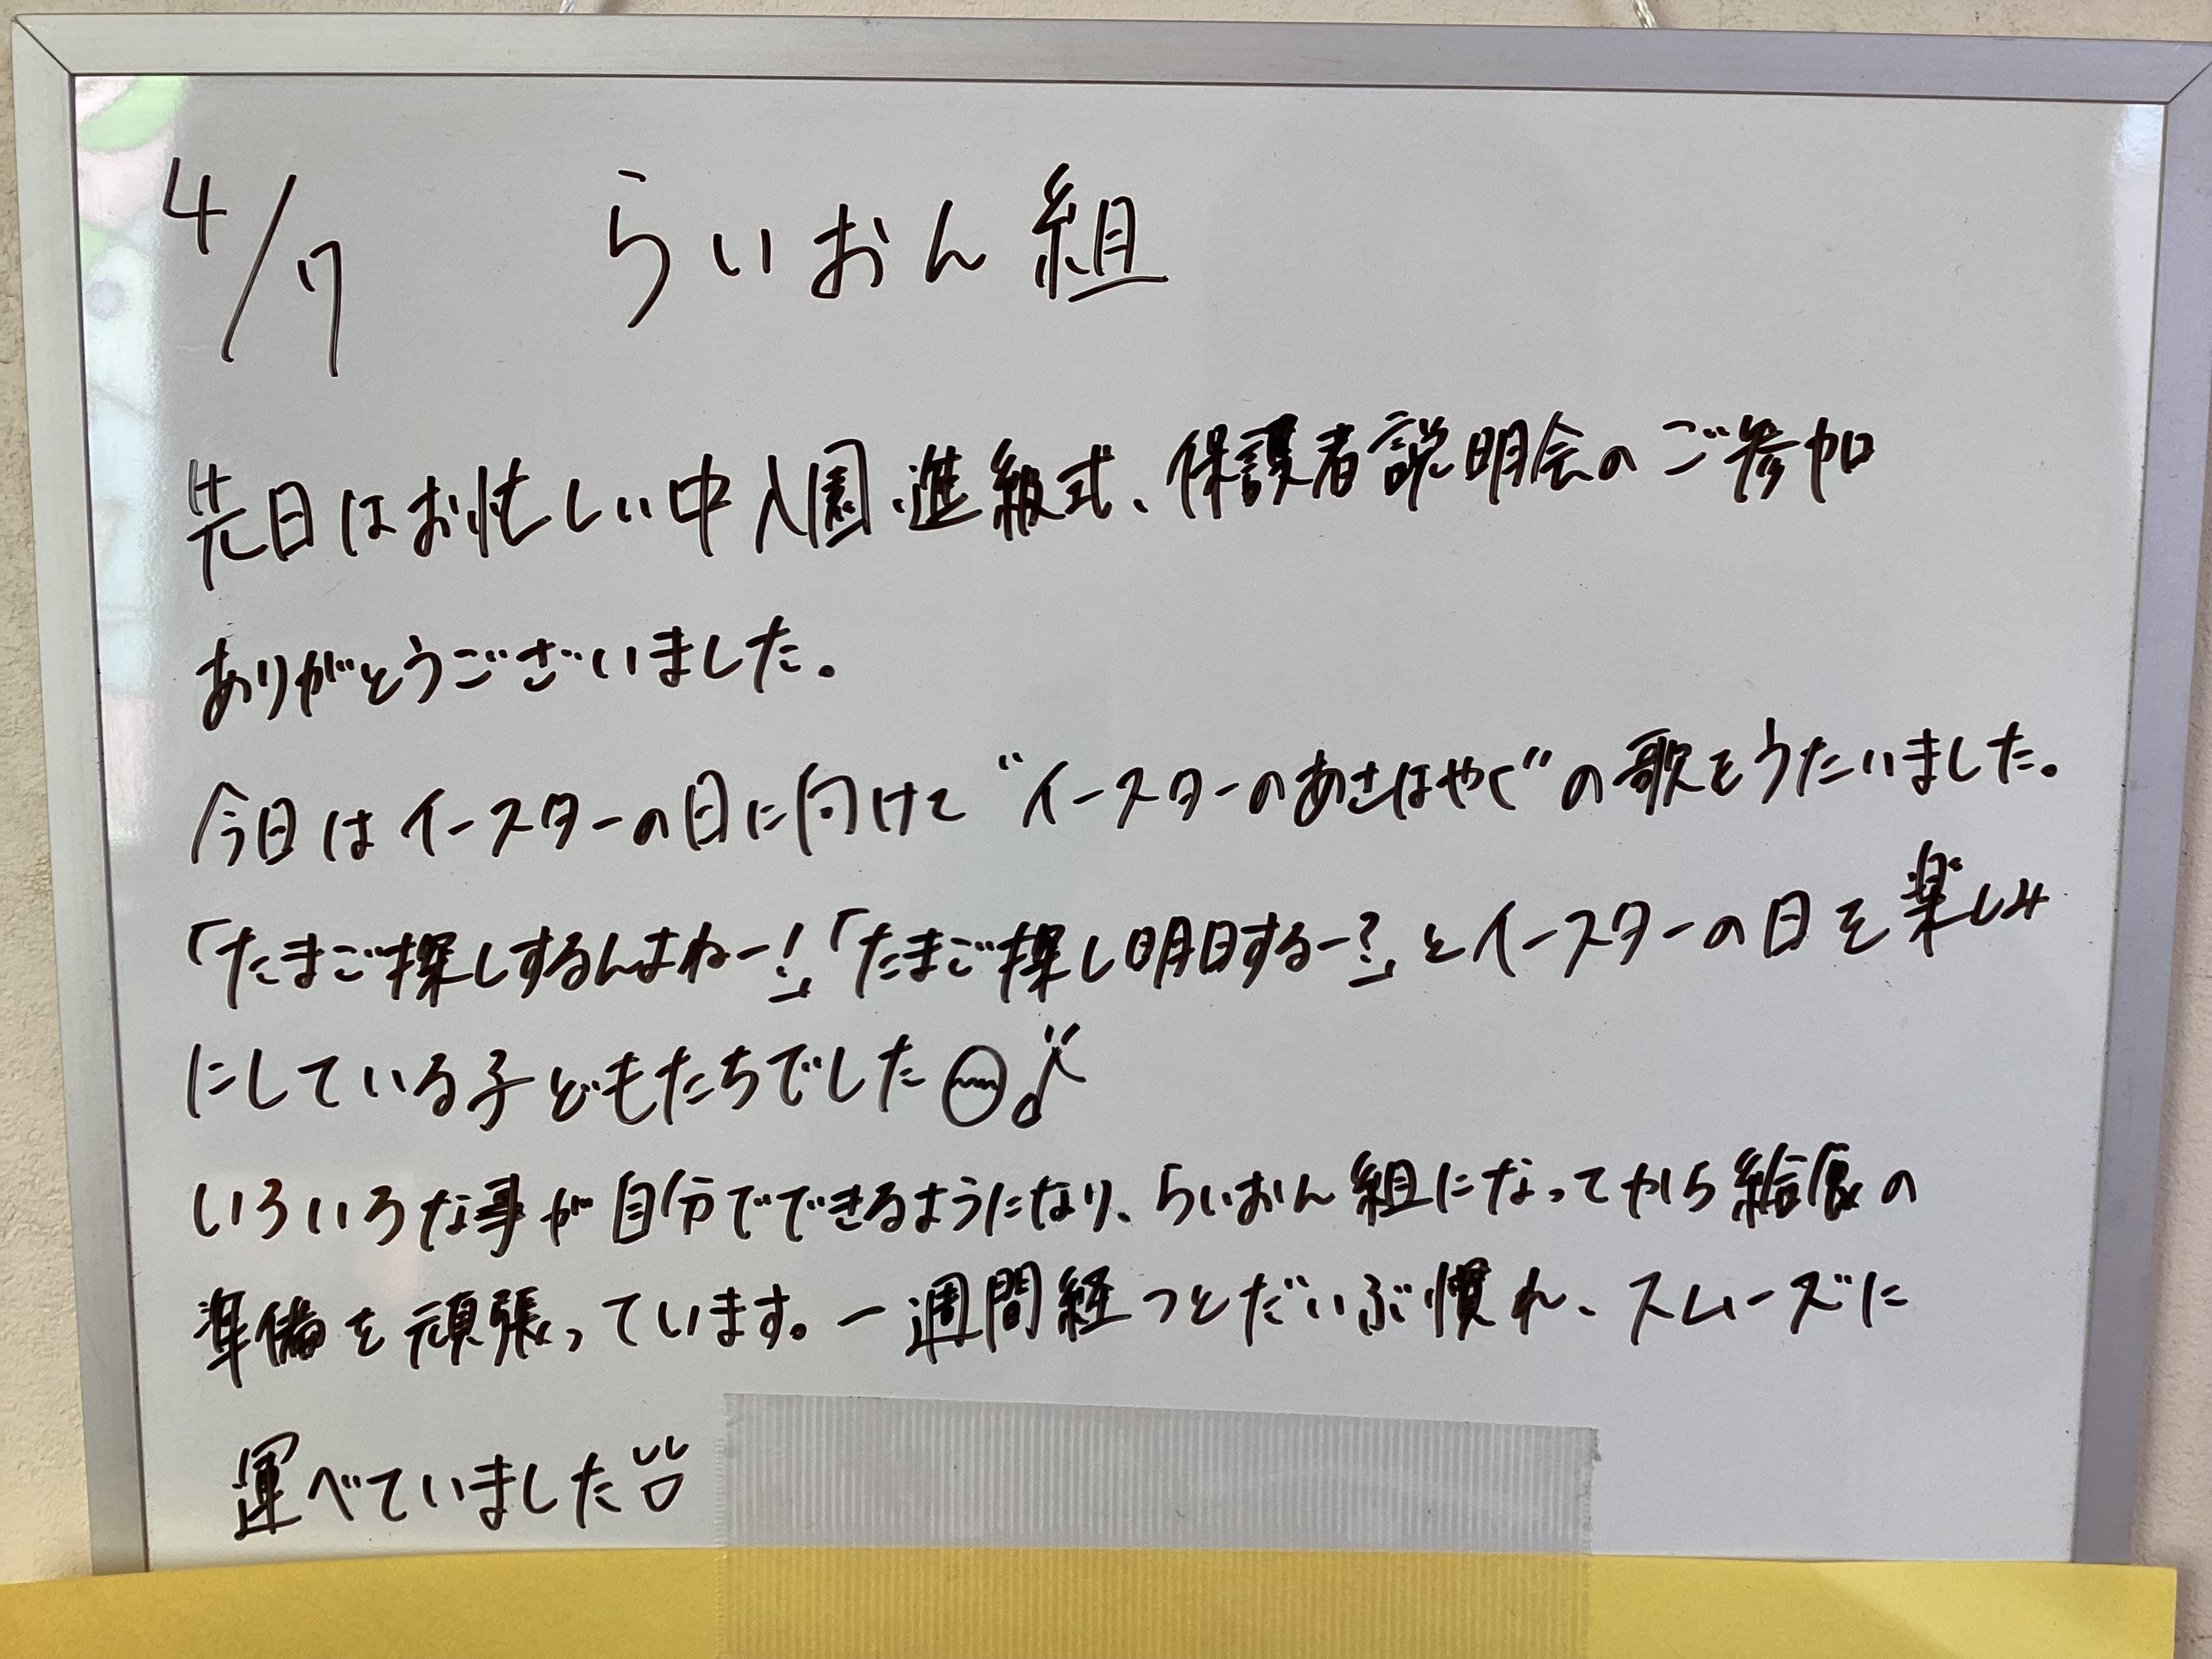 4/7 らいおん組
先日はお忙しい中入園・進級式、保護者説明会のご参加
ありがとうございました。
今日はイースターの日に向けて"イースターのあさはやく"の歌をうたいました。
「たまご探しするんよねー!」「たまご探し明日するー?」とイースターの日を楽しみ
にしている子どもたちでした
いろいろな事が自分でできるようになり、らいおん組になってから給食の
準備を頑張っています。一週間経つとだいぶ慣れ、スムーズに
運べていました